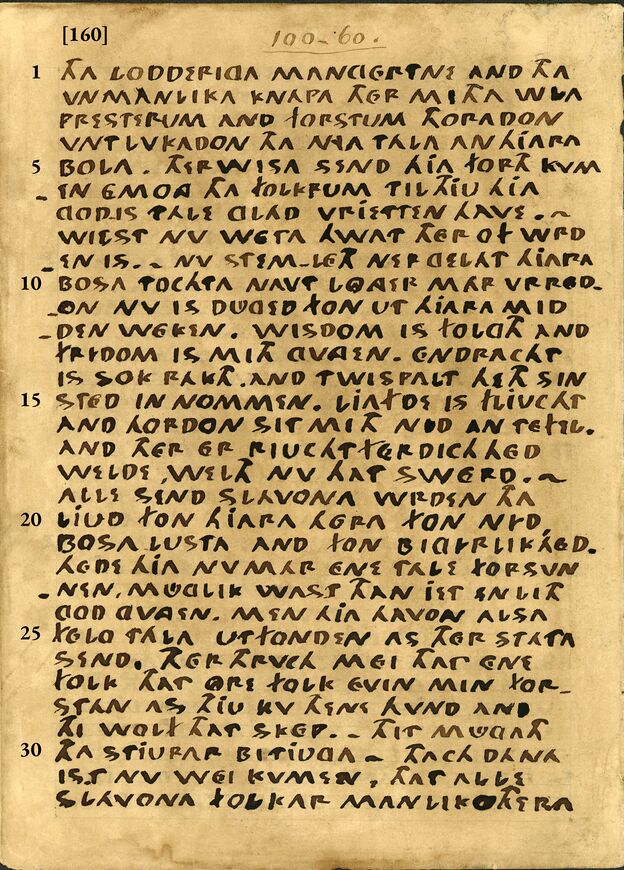 [160]
100-60.
1 THA LODDERIGA MANGERTNE AND THA
VNMANLIKA KNAPA THER MITHA WLA
PRESTERUM AND FORSTUM THORADON
VNTLVKADON THA NYA TALA AN HIARA
5 BOLA. THERWISA SEND HIA FORTH KVM
-EN EMONG THA FOLKRUM TIL THIU HIA
GODIS TALE GLAD VRIETTEN HAVE. ~
WILST NV WETA HWAT THER OF WRD
-EN IS. ~ NV STEM-LETH NER GELAT HIARA
10 BOSA TOCHTA NAVT LONGER MAR VRRED-
-ON NV IS DUGED FON UT HIARA MID
-DEN WEKEN. WISDOM IS FOLGTH AND
FRYDOM IS MITH GVNGEN. ENDRACHT
IS SOK RAKTH. AND TWISPALT HETH SIN
15 STED IN NOMMEN. LIAFDE IS FLIUCHT
AND HORDOM SIT MITH NYD AN TEFEL.
AND THER ER RIUCHTFERDICHHED
WELDE, WELTH NV HAT SWERD. ~
ALLE SEND SLAVONA WRDEN THA
20 LIUD FON HIARA HERA FON NYD,
BOSA LUSTA AND FON BIGIRLIKHED.
HEDE HIA NVMAR ENE TALE FORSVN
-NEN, MUGLIK WAST THAN IET EN LITH
GOD GVNGEN. MEN HIA HAVON ALSA
25 FELO TALA UTFONDEN AS THER STATA
SEND. THERTHRVCH MEI THAT ENE
FOLK THAT ORE FOLK EVIN MIN FOR-
STAN AS THIU KV THENE HVND AND
THI WOLF THAT SKEP. ~ THIT MUGATH
30 THA STIURAR BITIUGA ~ THACH DANA
IST NV WEI KVMEN, THAT ALLE
SLAVONA FOLKAR MANLIKOTHERA